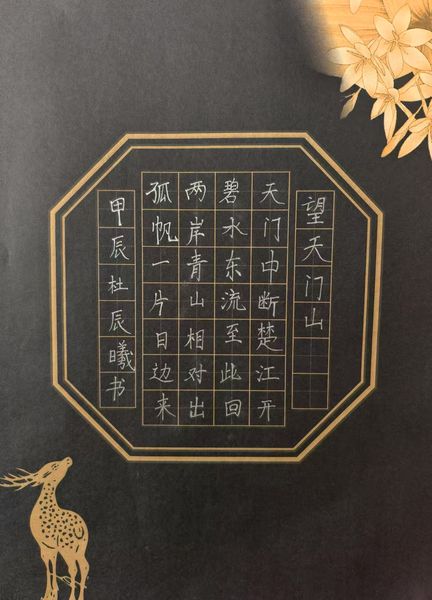 望天门山
天门中断楚江开
碧水东流至此回
两岸青山相对出
孤帆一片日边来
甲辰杜辰曦书